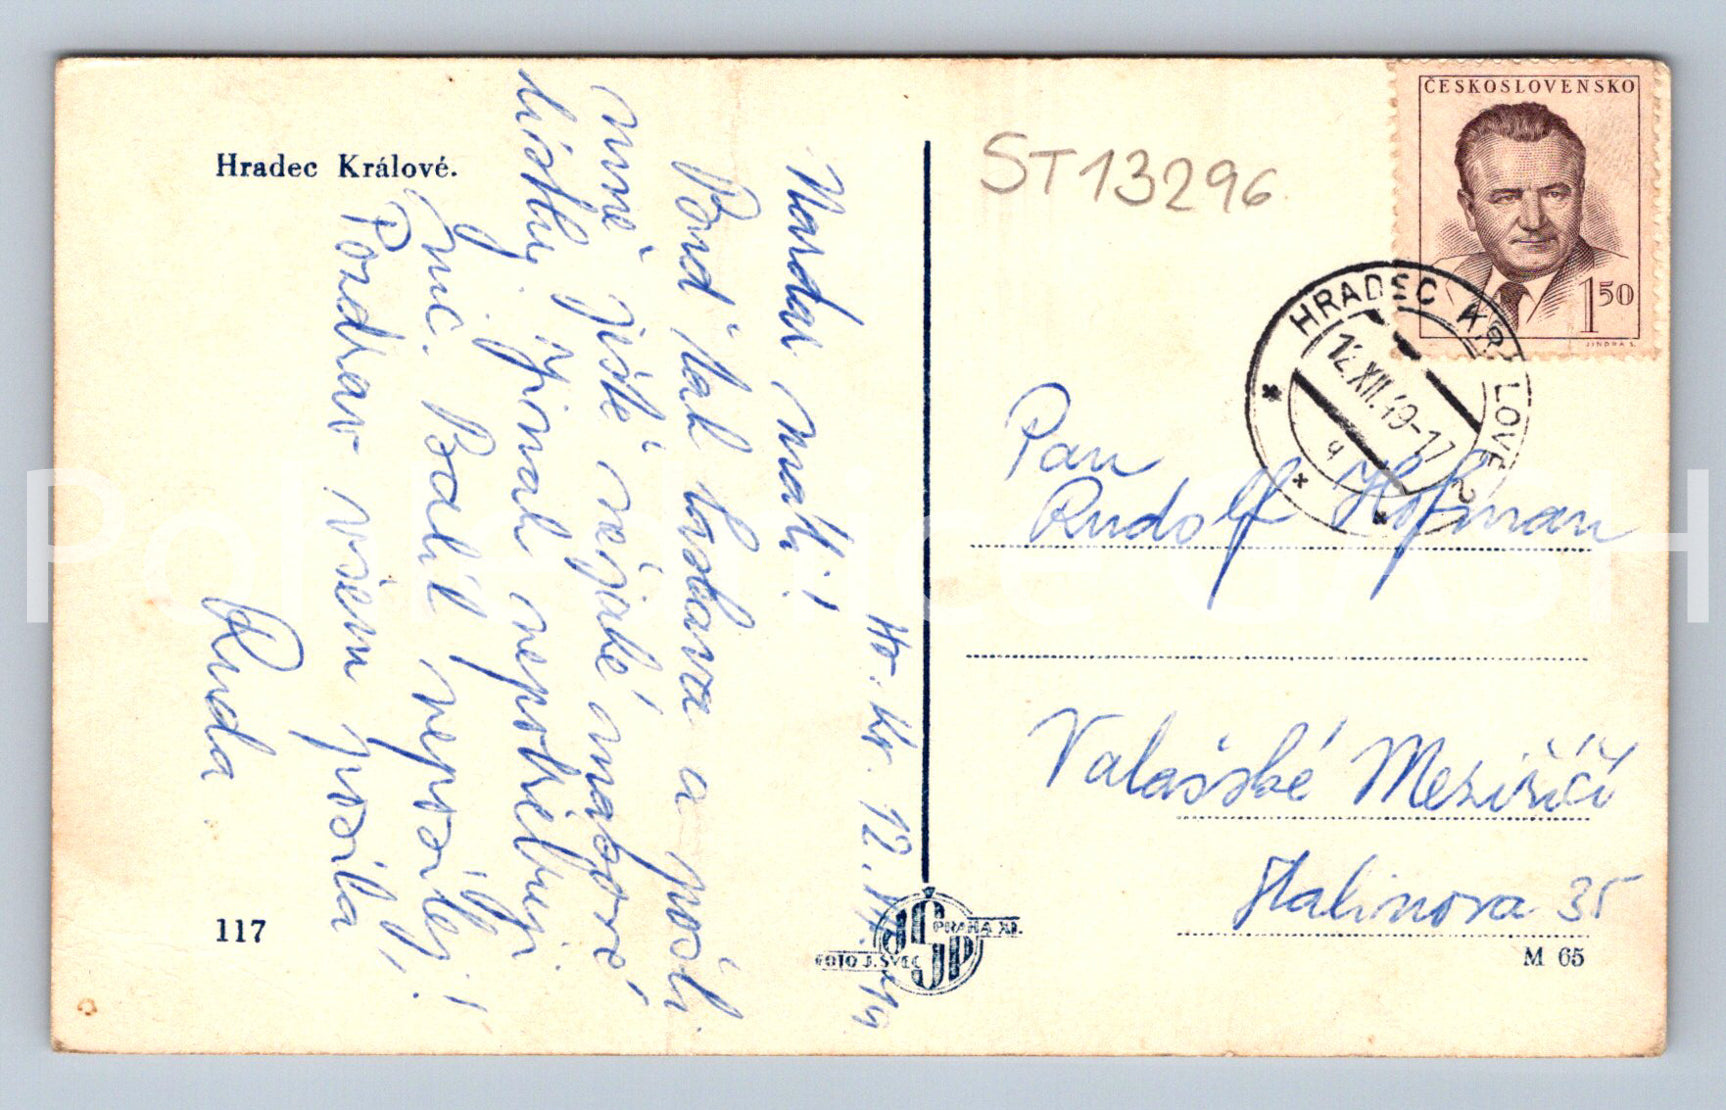 Hradec Králové.
Hr. Kr. 12.
Nazdar mati!
Bond tak laskava a pošli
mně ještě nějaké mastné
lístky. Jinak nepotřebuji
nic. Balíl neposílej!
Pozdrav všem posílá
Ruda.
117
FOTO J. ŠVEC
PRAHA XII.
ST13296
ČESKOSLOVENSKO
1 50
JINDRA S.
HRADEC KRÁLOVÉ 2
12.XII.49-17
Pan
Rudolf Hofman
Valašské Meziříčí
Stalinova 35
M 65